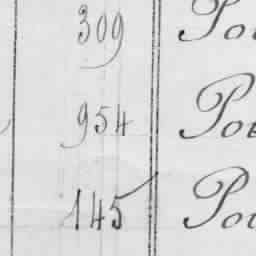 309 Po
954 Po
145 Po